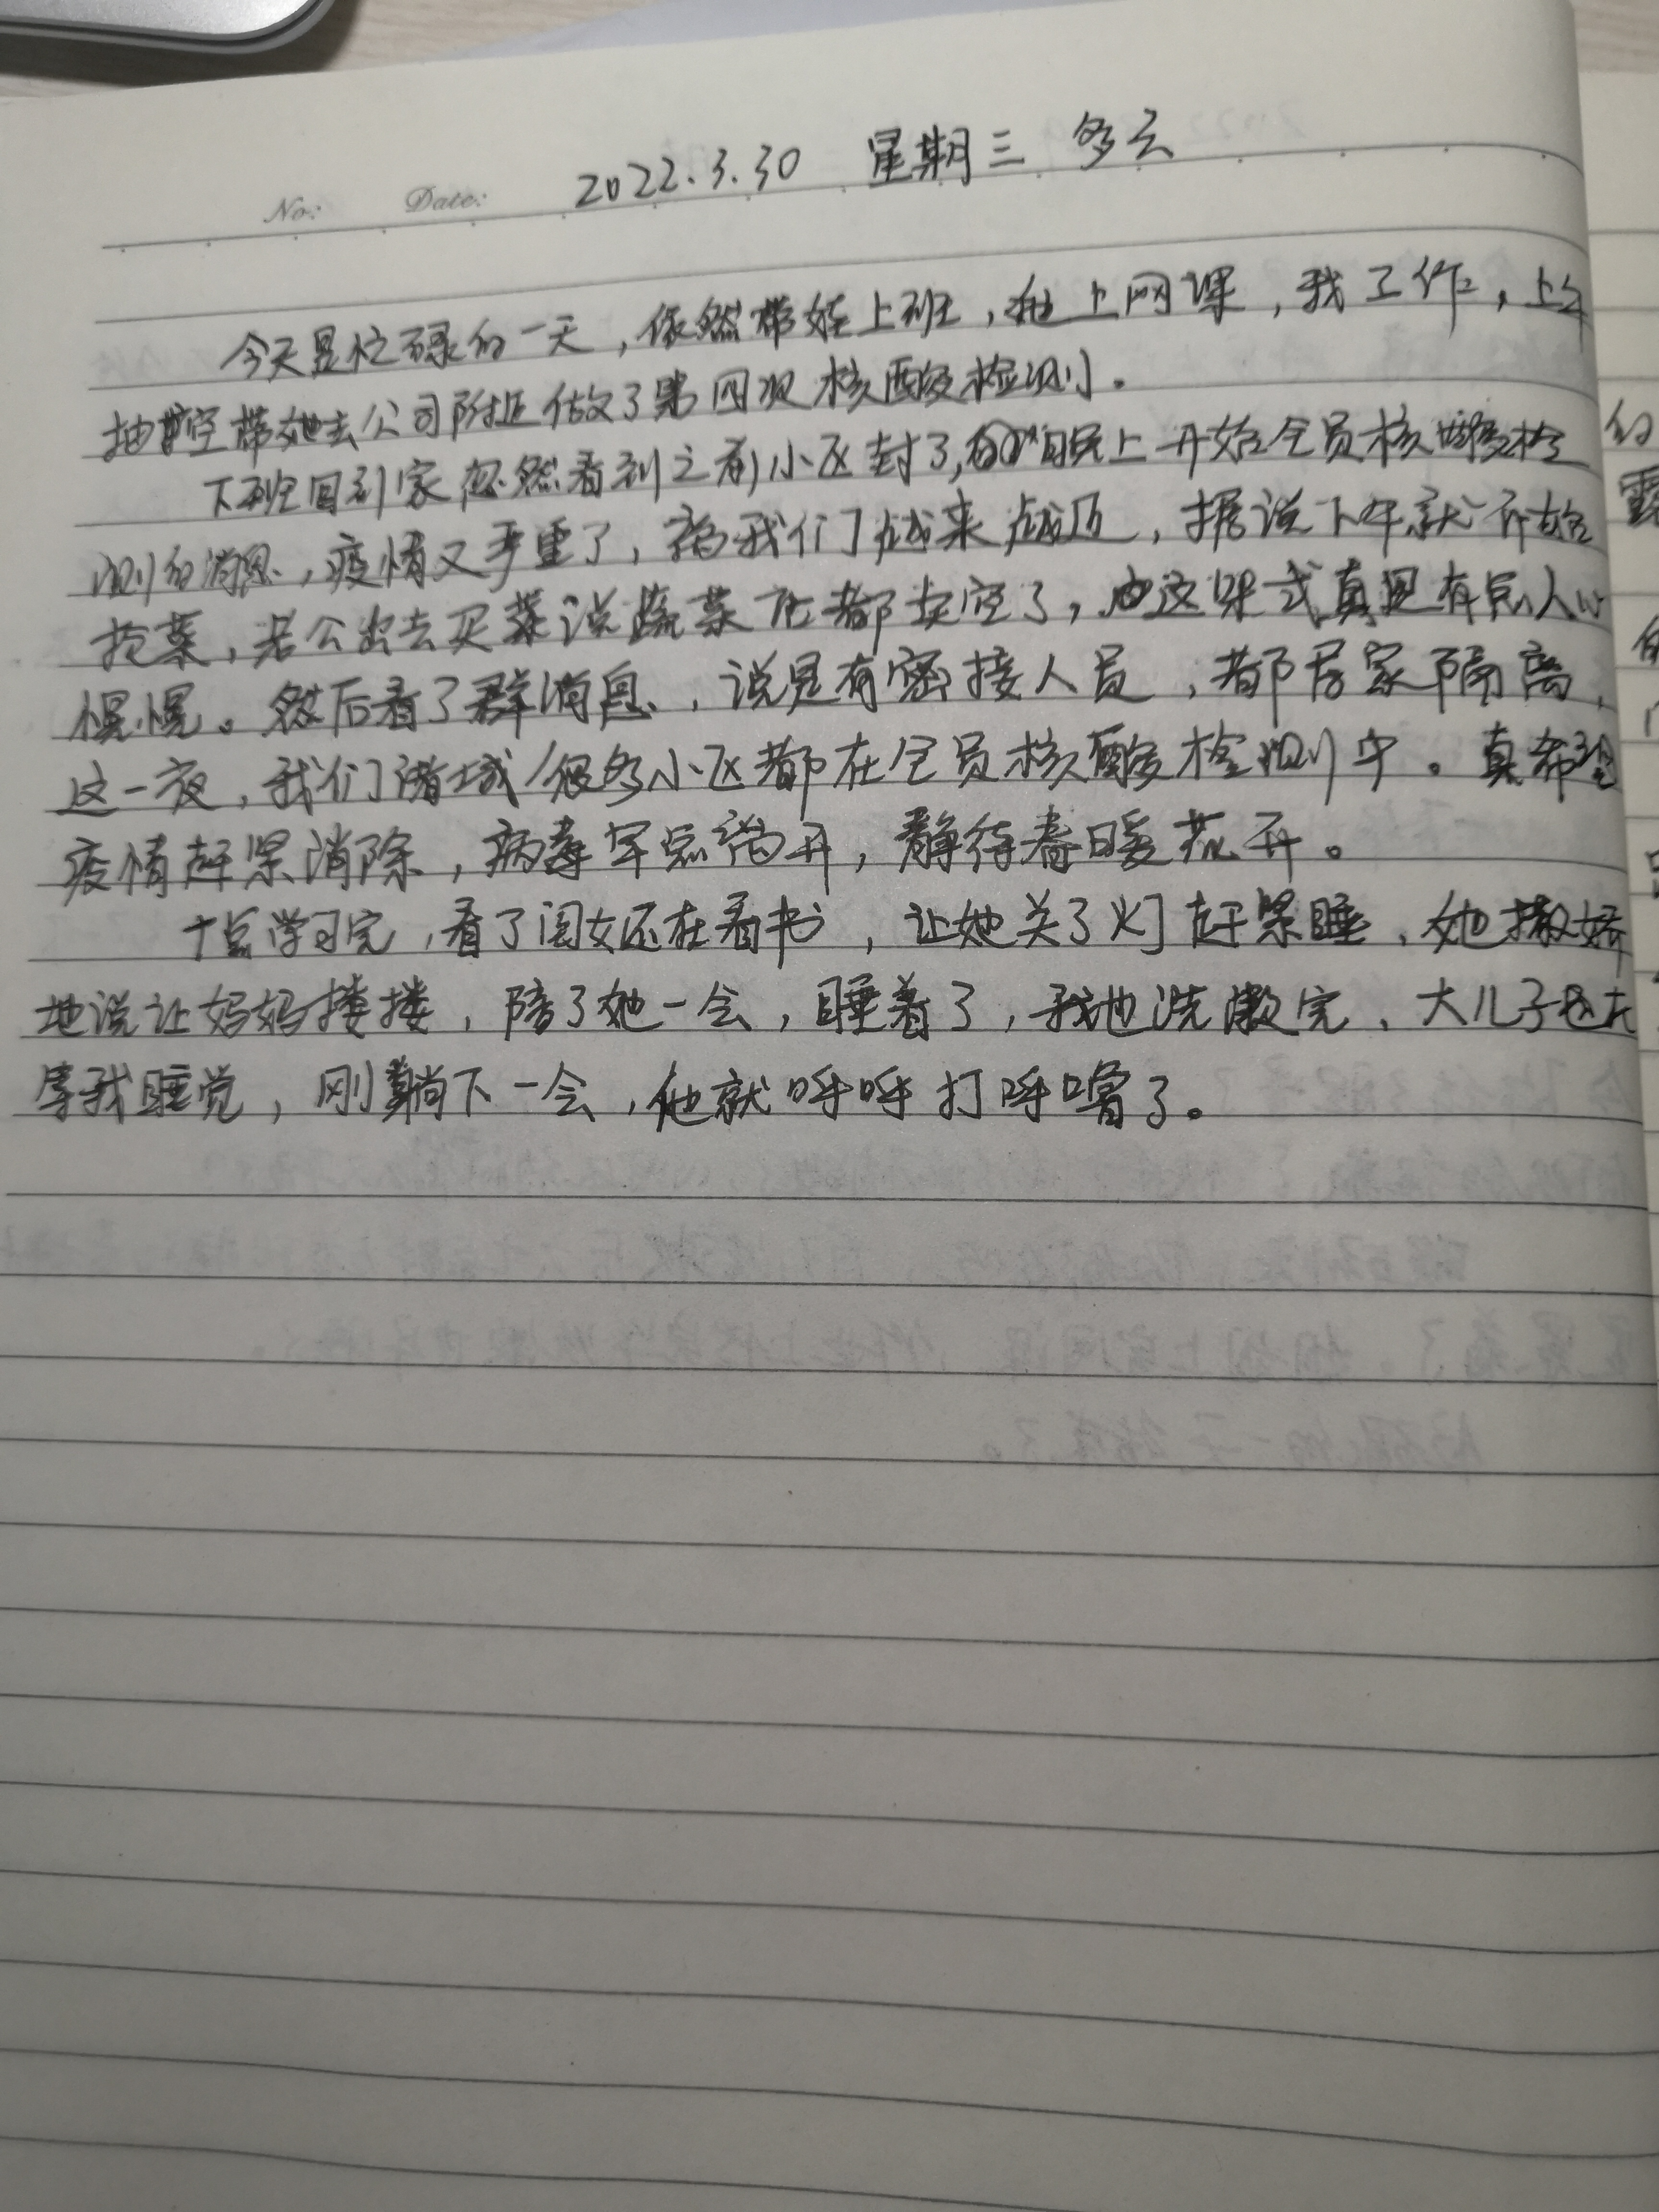 No: Date: 2022.3.30 星期三 多云
今天是忙碌的一天，依然带娃上班，她上网课，我工作，上午
抽空带她去公司附近做了第四次核酸检测。
下班回到家忽然看到之前小区封了，晚上开始全员核酸检
测的消息，疫情又严重了，离我们越来越近，据说下午就开始
抢菜，老公出去买菜说蔬菜店都卖空了，这架式真是有点人心
慌慌。然后看了群消息，说是有密接人员，都居家隔离，
这一夜，我们诸城很多小区都在全员核酸检测中。真希望
疫情赶紧消除，病毒早点离开，静待春暖花开。
十点学习完，看了闺女还在看书，让她关了灯赶紧睡，她撒娇
地说让妈妈搂搂，陪了她一会，睡着了，我也洗漱完，大儿子也在
等我睡觉，刚躺下一会，他就呼呼打呼噜了。